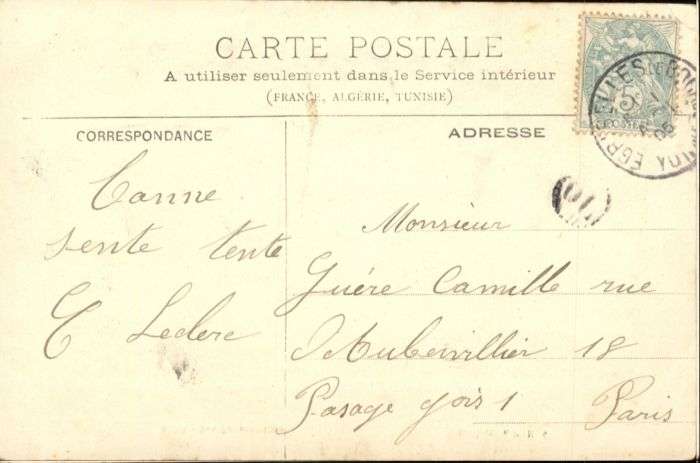 CARTE POSTALE
A utiliser seulement dans le Service intérieur
(FRANCE, ALGÉRIE, TUNISIE)
CORRESPONDANCE
ADRESSE
Canne
sente tente
E Leclerc
Monsieur
Guére Camille rue
d'Aubervillier 18
Pasage gois 1 Paris
5